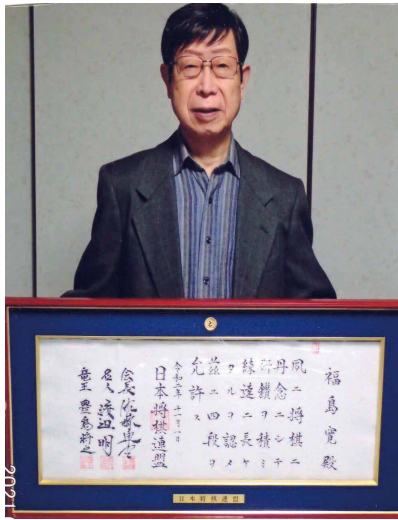 福島寛殿
夙ニ将棋ニ
丹念ニシテ
研鑽ヲ積ミ
練達ニ長ケ
タルヲ認メ
茲ニ四段ヲ
允許ス
令和二年十一月
日本将棋連盟
会長 佐藤康光
名人 渡辺明
竜王 豊島将之
日本将棋連盟
2021